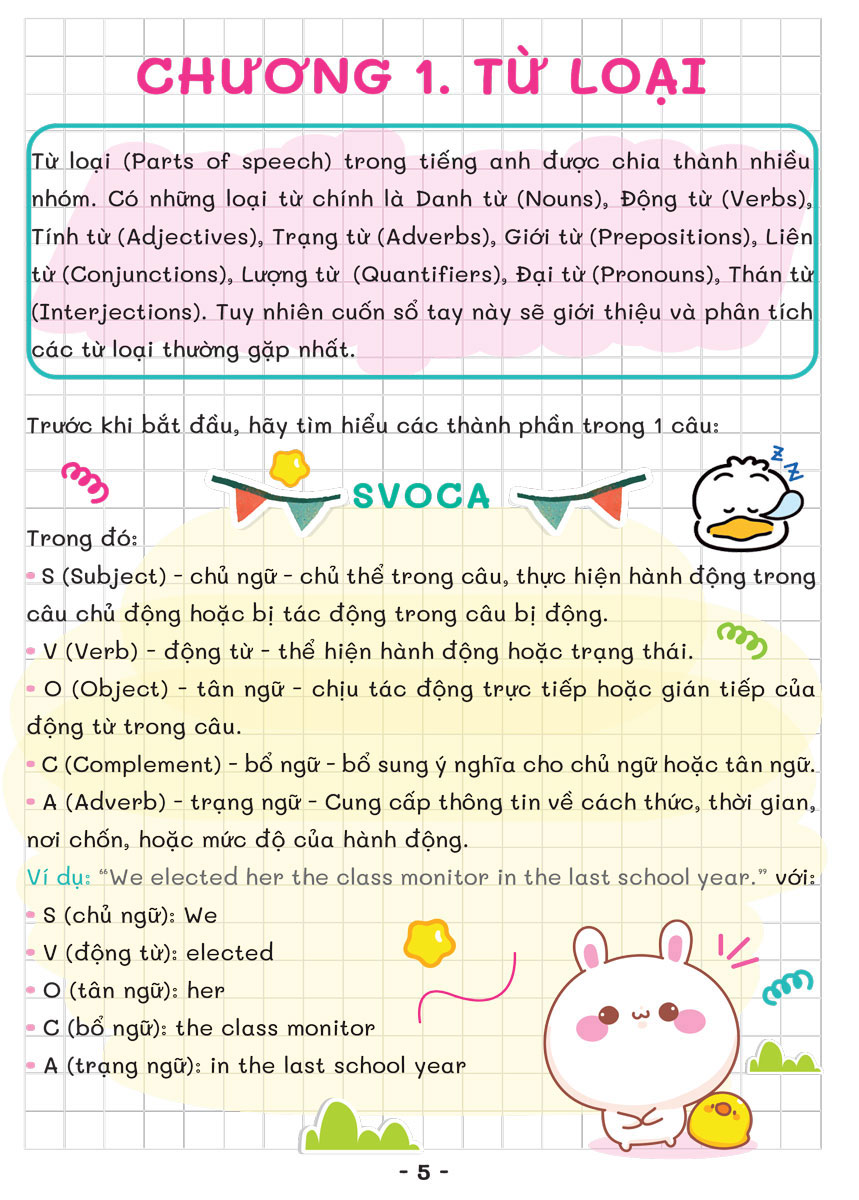 CHƯƠNG 1. TỪ LOẠI
Từ loại (Parts of speech) trong tiếng anh được chia thành nhiều
nhóm. Có những loại từ chính là Danh từ (Nouns), Động từ (Verbs),
Tính từ (Adjectives), Trạng từ (Adverbs), Giới từ (Prepositions), Liên
từ (Conjunctions), Lượng từ (Quantifiers), Đại từ (Pronouns), Thán từ
(Interjections). Tuy nhiên cuốn sổ tay này sẽ giới thiệu và phân tích
các từ loại thường gặp nhất.
Trước khi bắt đầu, hãy tìm hiểu các thành phần trong 1 câu:
z z z
SVOCA
Trong đó:
• S (Subject) - chủ ngữ - chủ thể trong câu, thực hiện hành động trong
câu chủ động hoặc bị tác động trong câu bị động.
• V (Verb) - động từ - thể hiện hành động hoặc trạng thái.
• O (Object) - tân ngữ - chịu tác động trực tiếp hoặc gián tiếp của
động từ trong câu.
• C (Complement) - bổ ngữ - bổ sung ý nghĩa cho chủ ngữ hoặc tân ngữ.
• A (Adverb) - trạng ngữ - Cung cấp thông tin về cách thức, thời gian,
nơi chốn, hoặc mức độ của hành động.
Ví dụ: “We elected her the class monitor in the last school year.” với:
• S (chủ ngữ): We
• V (động từ): elected
• O (tân ngữ): her
• C (bổ ngữ): the class monitor
• A (trạng ngữ): in the last school year
- 5 -